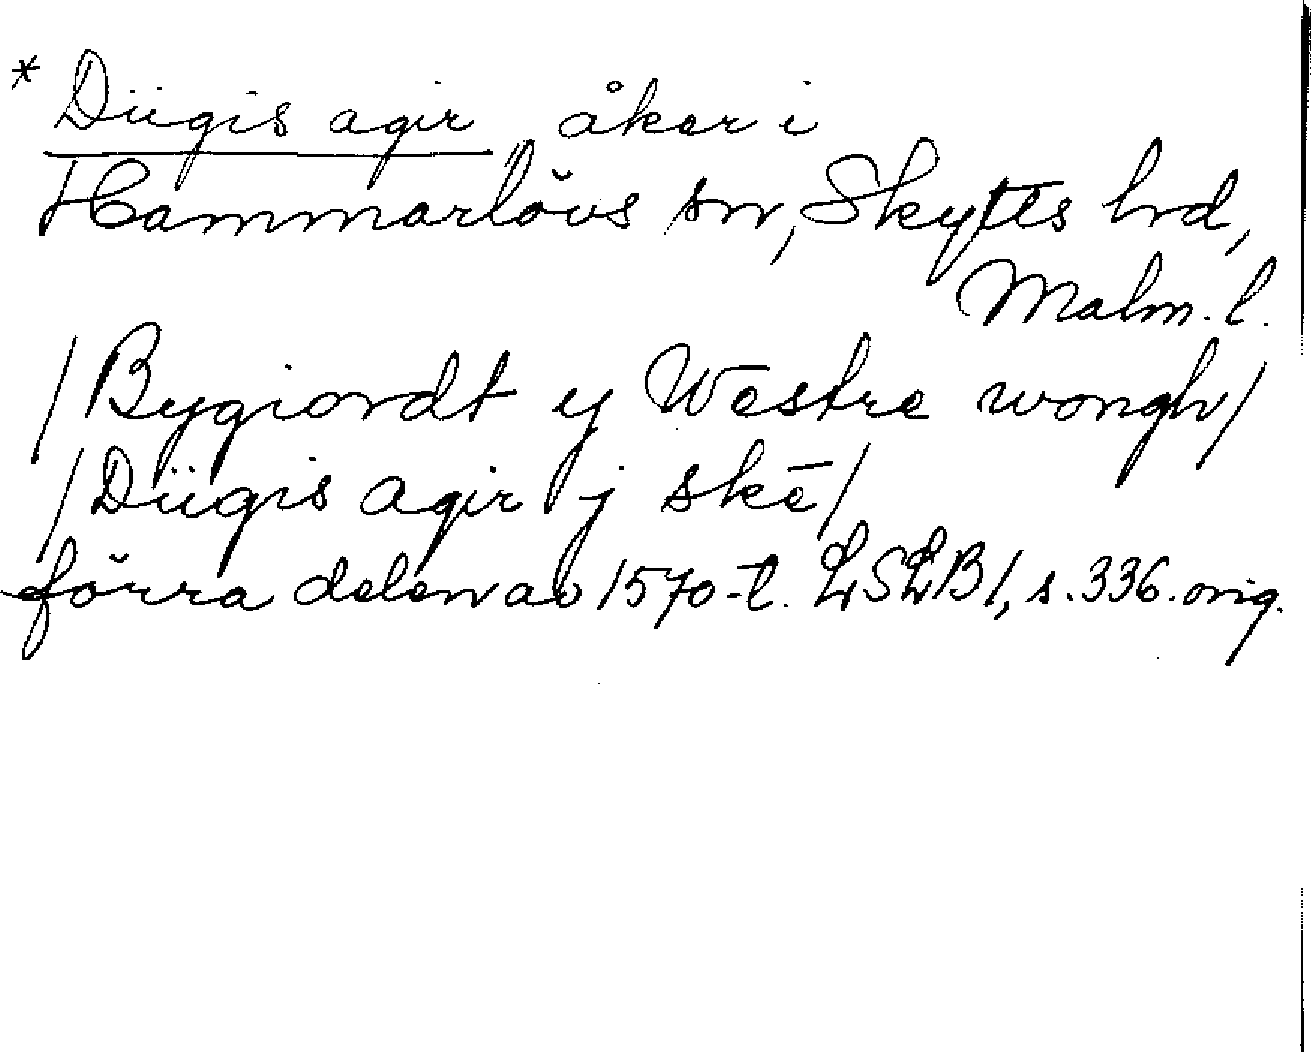 * Dügis agir, åker i
Hammarlövs sn, Skytts hrd,
Malm. l.
/Bygiordt y Westre wongh/
/Dügis agir j skē/
förra delen av 1570-t. LSLB1, s. 336. orig.